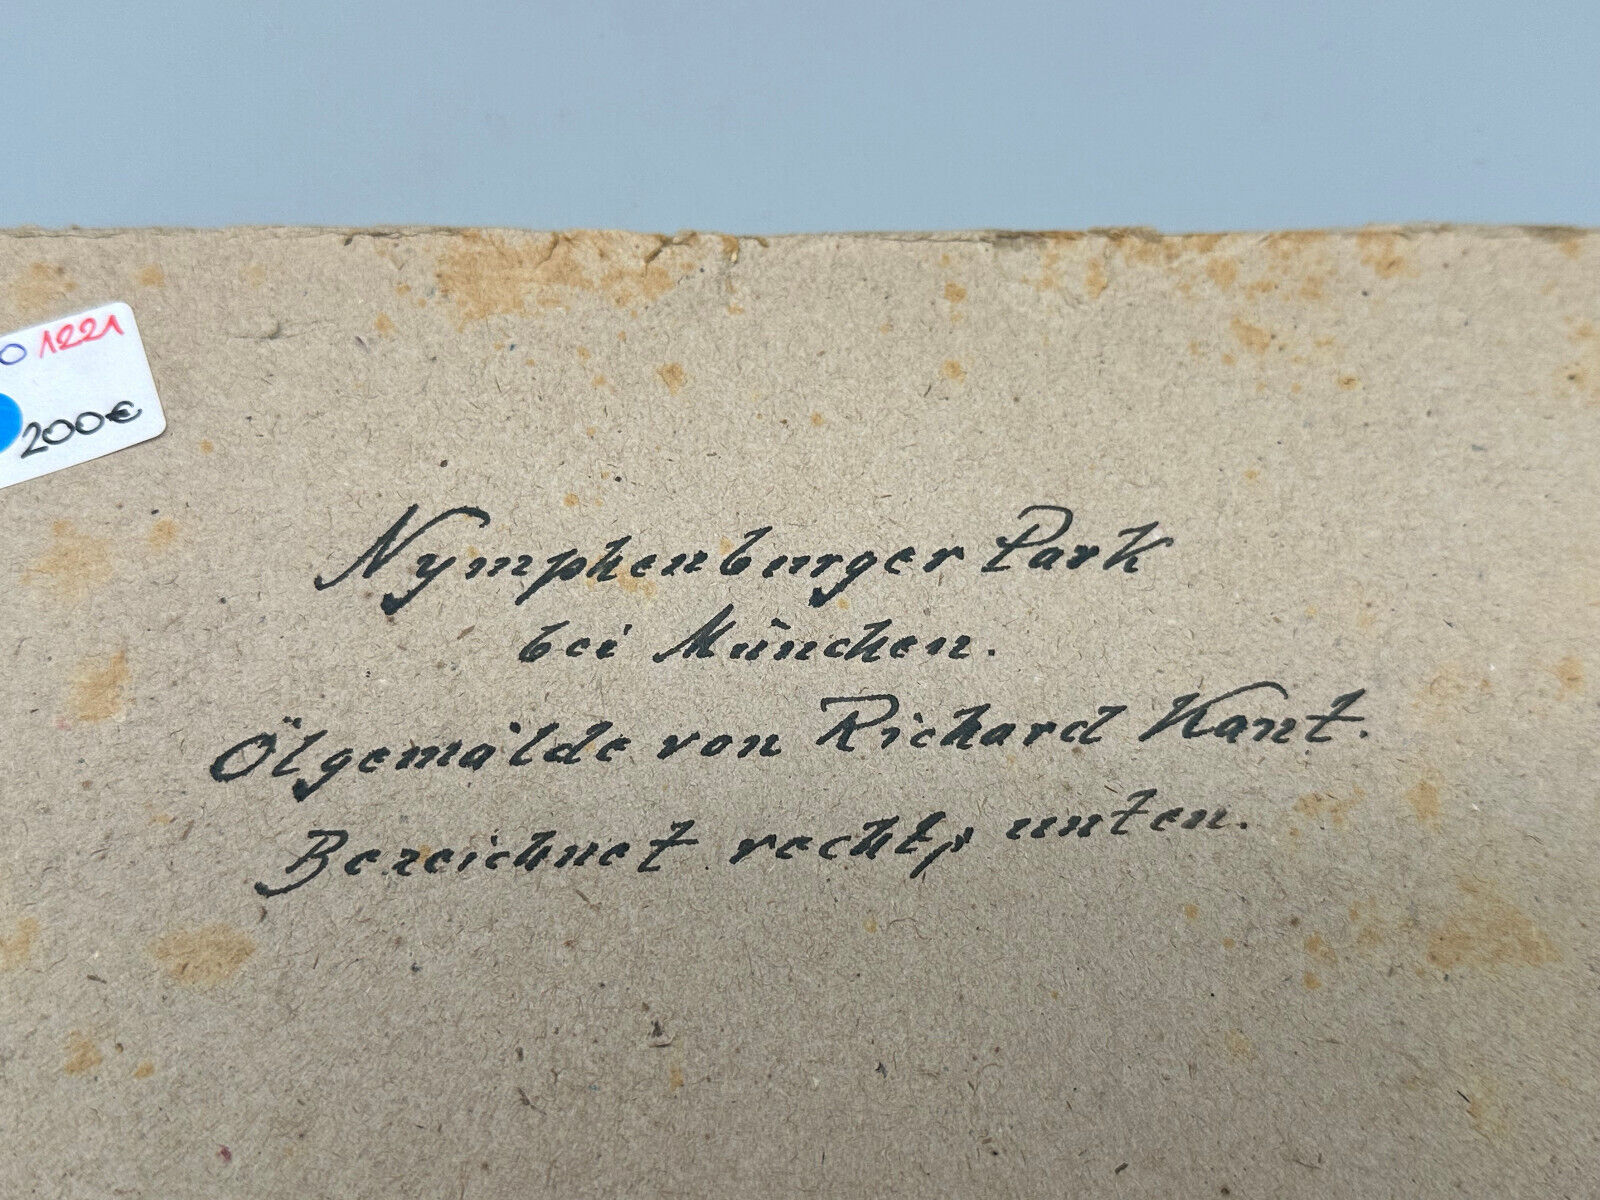 0 1221
200€
Nymphenburger Park
bei München.
Ölgemälde von Richard Kant.
Bezeichnet rechts unten.